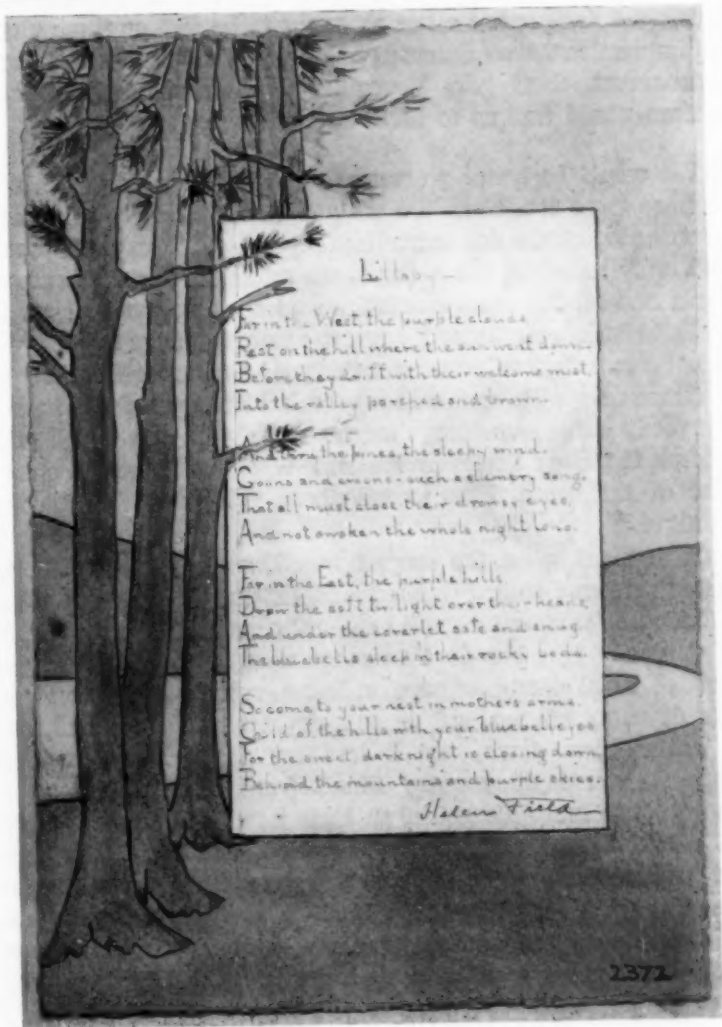 Lullaby —
Far in the West, the purple clouds,
Rest on the hill where the sun went down.
Before they drift with their welcome mist,
Into the valley parched and brown.
And thru the pines, the sleepy wind.
Croons and croons - such a slumbery song,
That all must close their drowsy eyes,
And not awaken the whole night long.
Far in the East, the purple hills
Draw the soft twilight over their heads,
And under the coverlet safe and snug
The bluebells sleep in their rocky beds.
So come to your nest in mothers arms.
Child of the hills with your bluebell eyes
For the sweet, dark night is closing down
Behind the mountains and purple skies.
Helen Field
2372